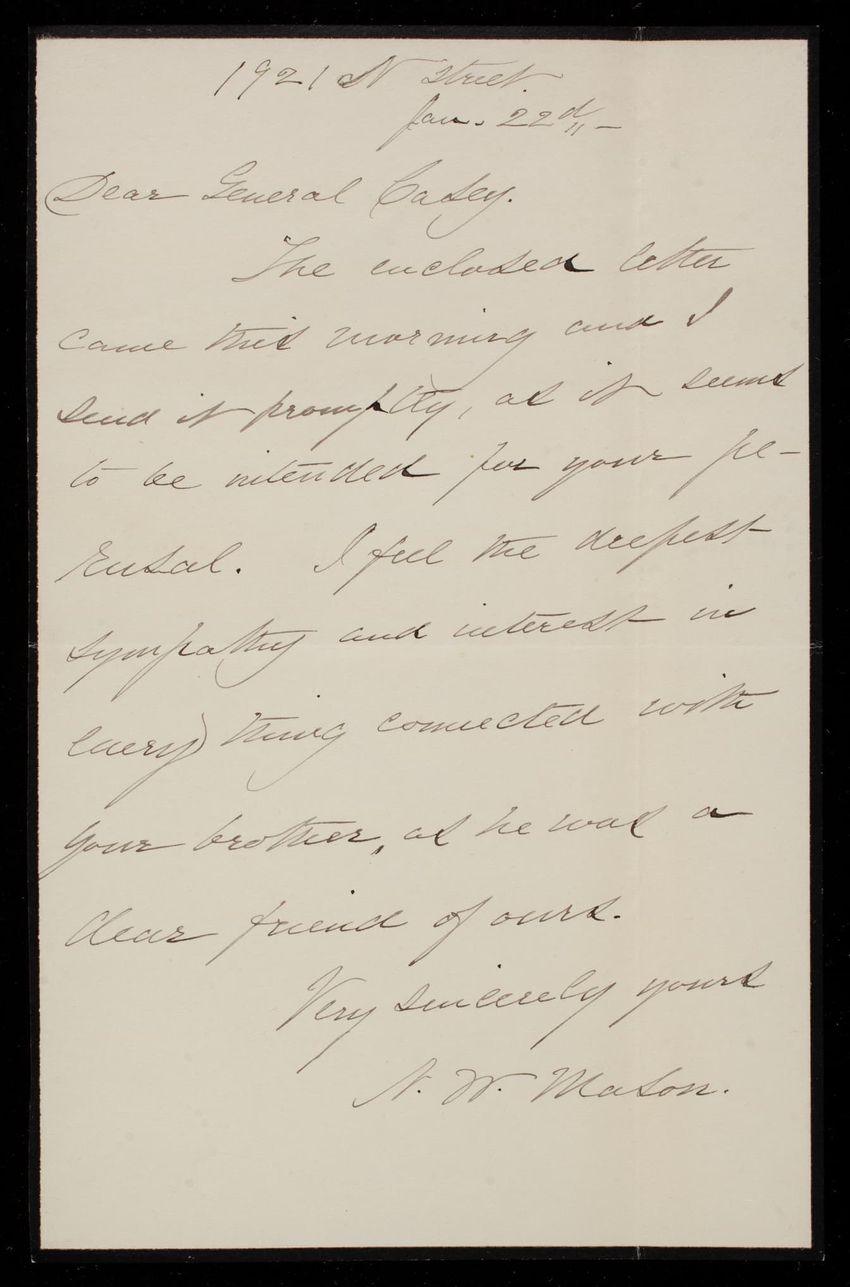 1921 N Street.
Jan. 22d —
Dear General Casey.
The enclosed letter
came this morning and I
send it promptly, as it seems
to be intended for your pe-
rusal. I feel the deepest
sympathy and interest in
every thing connected with
your brother, as he was a
dear friend of ours.
Very sincerely yours
N. W. Mason.